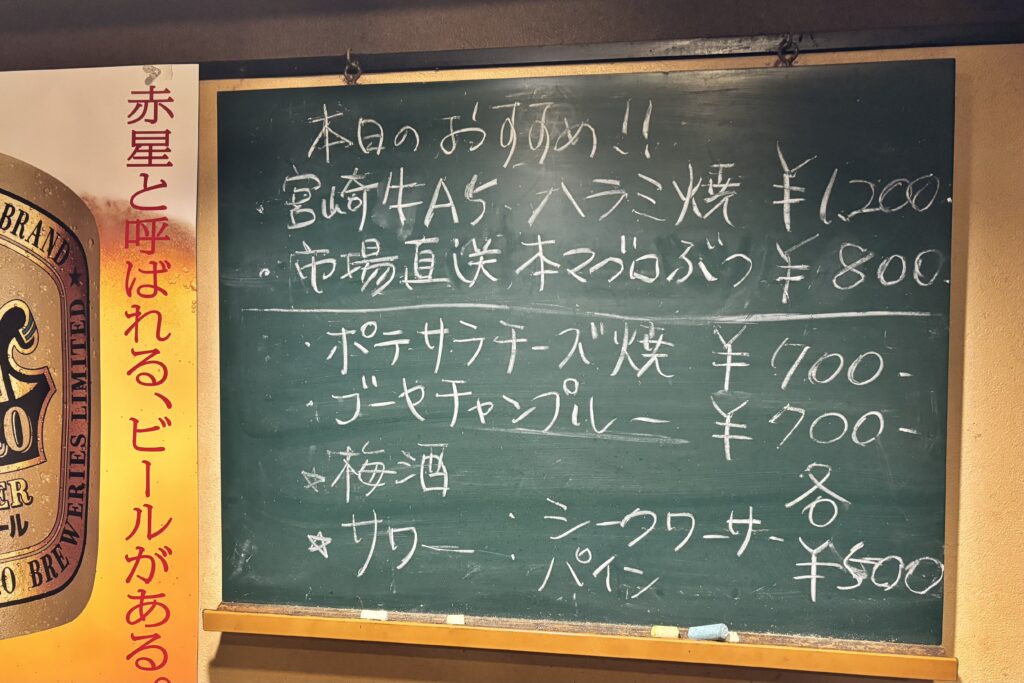 赤星と呼ばれる、ビールがある。
BRAND ★
BREWERIES LIMITED
ール
本日の おすすめ!!
・宮崎牛A5 ハラミ焼 ¥1,200-
・市場直送 本マグロぶつ ¥800-
・ポテサラチーズ焼 ¥700-
・ゴーヤチャンプルー ¥700-
☆梅酒 各
☆サワー ・シークワーサー ¥500
パイン